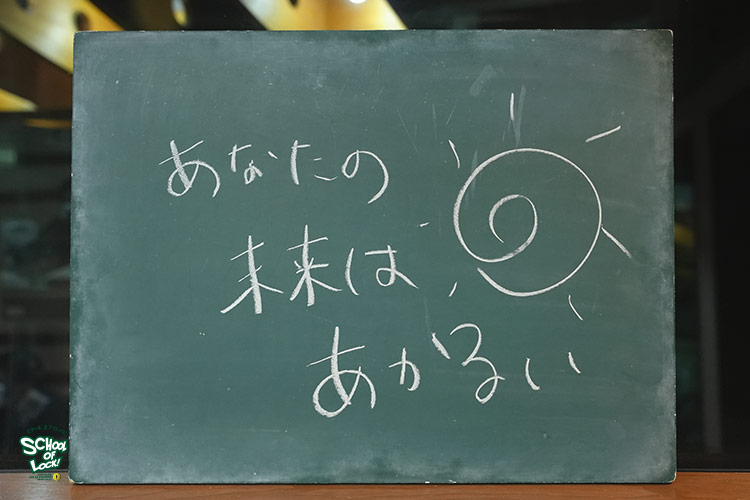 あなたの
未来は
あかるい
SCHOOL
OF
LOCK!